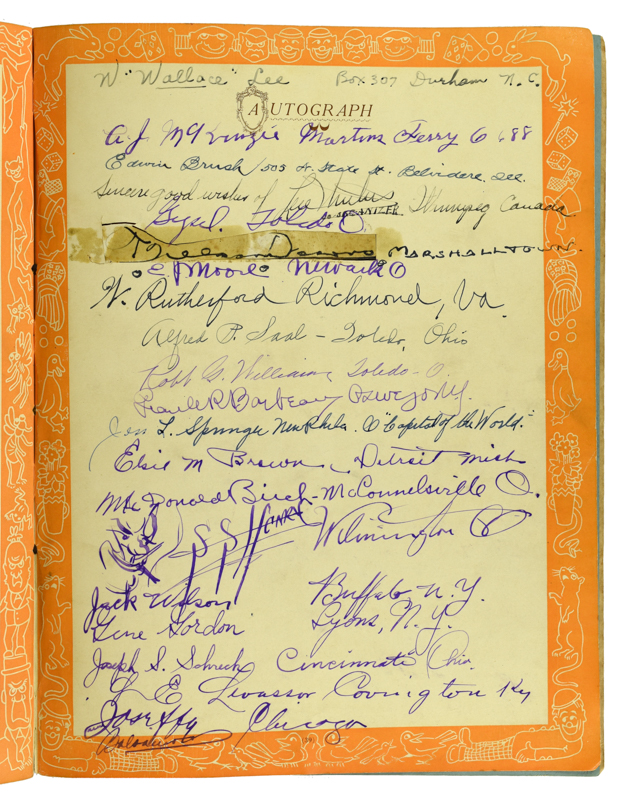 W "Wallace" Lee Box 307 Durham N.C.
AUTOGRAPH
A.J. McKinzie Martins Ferry O 688
Edwin Brush, 503 N. State St. Belvidere, Ill.
Sincere good wishes of Winnipeg Canada
ORGANIZER
Toledo O
MARSHALLTOWN.
E Moore Newark O
W. Rutherford Richmond, Va.
Alfred P. Saal - Toledo, Ohio
Robb G. Williams, Toledo - O.
Frank R Barbeau Oswego N.Y.
Jon L. Springer New Phila. O "Capital of the World."
Elsie M Brown, Detroit Mich
MacDonald Birch - McConnelsville O.
SS HENRY Wilmington O
Jack Wilson Buffalo N.Y.
Gene Gordon Lyons, N.Y.
Joseph S. Schneck Cincinnati Ohio.
L E Levassor Covington Ky
Joseffy Chicago